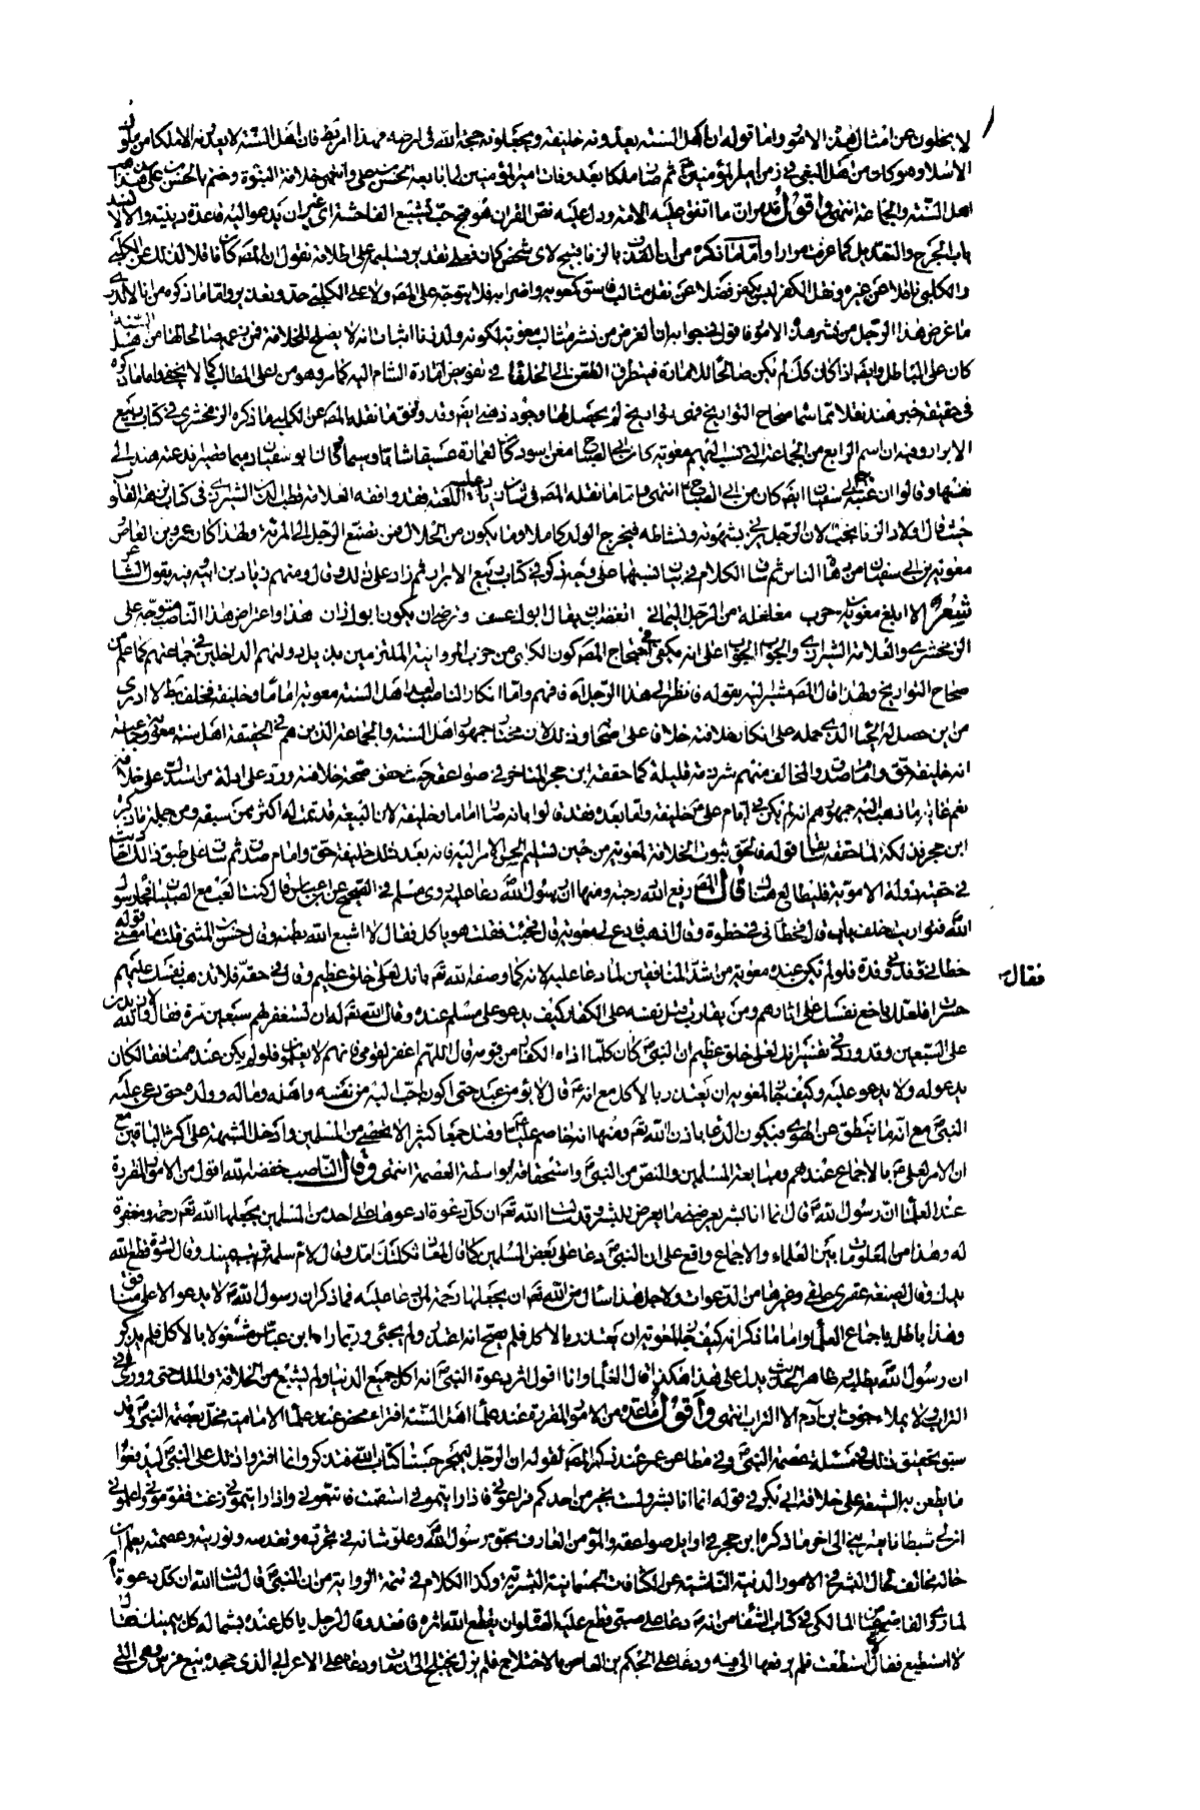 لا يخلون عن امثال هذه الامور واما قوله ان اهل السنة يعدونه خليفة ويجعلونه حجة الله في ارضه فهذا امر باطل فان اهل السنة لا يعدونه الا ملكا من ملوك
الاسلام وهو كان من اهل البغي في زمن امير المؤمنين ثم صار ملكا بعد وفات امير المؤمنين لما تابعه الحسن بن علي وانتهى خلافة النبوة وختم بالحسن بن علي هذا مذهب
اهل السنة والجماعة انتهى واقول قد مر ان ما اتفق عليه الامة ودل عليه نص القرآن هو قبح حب تشييع الفاحشة اي من غير ان يدعو اليه فائدة دينية والا لانسد
باب الجرح والتعديل كما عرفت مرارا واما ما نكره من ان القذف بالزنا قبيح لاي شخص كان فعلى تقدير تسليمه على اطلاقه نقول ان المص كان ناقلا لذلك عن الكلبي
والكلبي ناقلا عن غيره ونقل الكفر ليس بكفر فضلا عن نقل مثالب فاسق كمعوية واضرابه فلا يتوجه على المص ولا على الكلبي حد وتعزير واما ما ذكره من انا لا ندري
ما غرض هذا الرجل من نشر هذه الامور فاقول في جوابه ان الغرض من نشر مثالب معوية لكونه ولد زنا اثبات انه لا يصلح للخلافة فمن زعمه صالحا لها من اهل السنة
كان على الباطل وايضا اذا كان كذلك لم يكن صالحا للامارة فيتطرق الطعن الى الخلفاء في تفويض امارة الشام اليه كما مر وهو من اعلى المطالب كما لا يخفى واما ما ذكره
في حقيقة خبر هند نقلا عما سماه صحاح التواريخ فهي تواريخ لم يحصل لها وجود ذهني ايضا وقد وافق ما نقله المص عن الكلبي ما ذكره الزمخشري في كتاب ربيع
الابرار
حيث قال اولاد الزنا نجب لان الرجل يزني بشهوته ونشاطه فيخرج الولد كاملا وما يكون من الحلال فمن تصنع الرجل الى المرأة ولهذا كان عمرو بن العاص
معوية بن ابي سفيان من دهاة الناس ثم ساق الكلام في بيان نسبهما على وجه ذكر في كتاب ربيع الابرار ثم زاد على ذلك وقال ومنهم زياد بن ابيه وفيه يقول الشاعر
شعر الا ابلغ معوية بن حرب مغلغلة من الرجل اليماني اتغضب ان يقال ابوك عف وترضى ان يكون ابوك زان هذا واعتراض هذا الناصب متوجه على
الزمخشري والعلامة الشيرازي والجواب الجواب على انه يكفي في احتجاج المص كون الكلبي من حزب المروانية الملتزمين بدين
صحاح التواريخ ولهذا قال المص مشيرا اليه بقوله فانظر الى هذا الرجل اه فافهم واما انكار الناصب لعد اهل السنة معوية اماما وخليفة فخلف باطل لا ادري
من اين حصل له الحياء الذي حمله على انكار خلافته خلافا على اصحابه وذلك لان مختار جمهور اهل السنة والجماعة الذين هم في الحقيقة اهل سنة معوية وجماعته
انه خليفة حق وامام صدق والمخالف منهم شرذمة قليلة كما حققه ابن حجر المتأخر في صواعقه حيث حقق صحة خلافته ورد على ادلة من استدل على خلافه
نعم غاية ما ذهب اليه جمهورهم انه لم يكن في ايام علي خليفة واما بعده فقد قالوا بانه صار اماما وخليفة لان البيعة قد تمت له اكثر ممن سبقه ومن جملة ما ذكره
ابن حجر فذلكة لما حققه سابقا قوله فالحق ثبوت الخلافة لمعوية من حينئذ لتسليم الحسن الامر اليه فانه بعد ذلك خليفة حق وامام صدق ثم ساق على طبق ذلك احاديث
في حقية دولة الاموية فليطالع هناك قال المص رفع الله درجته ومنها ان رسول الله دعا عليه روى مسلم في الصحيح عن ابن عباس قال كنت العب مع الصبيان فجاء رسول
الله فتواريت خلف باب قال فخطاني خطوة وقال اذهب فادع لي معوية قال فجئت فقلت هو يأكل فقال لا اشبع الله بطنه وقال حسن بن المثنى قلت ما معنى قوله
خطاني قال وقدني وقدة فلو لم يكن عنده معوية من اشد المنافقين لما دعا عليه لانه كما وصفه الله تع بانك لعلى خلق عظيم وقال في حقه فلا تذهب نفسك عليهم
فقال
حسرات فلعلك باخع نفسك على اثارهم ومن يقارب قتل نفسه على الكفار كيف يدعو على مسلم عنده وقال الله تع له ان تستغفر لهم سبعين مرة فقال والله لازيدن
على السبعين وقد ورد في تفسير انك لعلى خلق عظيم ان النبي كان كلما اذاه الكفار من قومه قال اللهم اغفر لقومي فانهم لا يعلمون فلو لم يكن عنده منافقا لكان
يدعو له ولا يدعو عليه وكيف جاز لمعوية ان يعتذر بالاكل مع انه قال لا يؤمن عبد حتى اكون احب اليه من نفسه واهله وماله وولده حتى دعي عليه
النبي مع انه ما ينطق عن الهوى فيكون الدعاء باذن الله تع ومنها انه خاصم عليا وقتل جمعا كثيرا لا يحصى من المسلمين وادخل الشبهة على اكثر الباقين مع
ان الامر لعلي بالاجماع عندهم وبمبايعة المسلمين والنص من النبي واستحقاقه بواسطة العصمة انتهى وقال الناصب خفضه الله اقول من الامور المقررة
عند العلماء ان رسول الله قال انما انا بشر يعرضني ما يعرض للبشر وقد سالت الله تع ان كل دعوة ادعوها على احد من المسلمين يجعلها الله تع رحمة ومغفرة
له وهذا من المعلومات بين العلماء والاجماع واقع على ان النبي دعا على بعض المسلمين كما قال لمعاذ ثكلتك امك وقال لام سلمة تربت يمينك وقال لسودة قطع الله
يدك وقال لصفية عقرى حلقى وغيرها من الدعوات ولاجل هذا سال من الله تع ان يجعلها رحمة لمن دعا عليه فما ذكر ان رسول الله لا يدعو الا على منافق
وهذا باطل باجماع العلماء واما ما ذكر انه كيف جاز لمعوية ان يعتذر بالاكل فلم يصح انه اعتذر ولم يجئ وربما راه ابن عباس مشغولا بالاكل فلم يذكر
ان رسول الله يطلبه وظاهر الحديث يدل على هذا هكذا قال العلماء وانا اقول اثر دعوة النبي انه اكل جميع الدنيا ولم يشبع من الخلافة والملك حتى ووري في
التراب ولا يملاء جوف ابن آدم الا التراب انتهى واقول ما عده من الامور المقررة عند علماء اهل السنة افتراء محض عند علماء الامامية مخل بعصمة النبي وقد
سبق تحقيق ذلك في مسئلة عصمة النبي وفي مطاعن عمر عند ذكر المص لقوله ان الرجل ليهجر حسبنا كتاب الله فتذكر وانما افتروا ذلك على النبي ليدفعوا
ما يطعن به الشيعة على خلافة ابي بكر في قوله انما انا بشر ولست بخير من احدكم فراعوني فاذا رايتموني استقمت فاتبعوني واذا رايتموني زغت فقوموني واعلموا
ان لي شيطانا يعتريني الى اخر ما ذكره ابن حجر في اوايل صواعقه والمؤمن العارف بحق رسول الله وعلو شانه في تجرده وتقدسه ونوريته وعصمته يعلم ان
حاله مخالف لحال البشر في الامور الدنية الناشية عن الكثافات الجسمانية البشرية وكذا الكلام في تتمة الرواية من ان النبي قال سالت الله ان كل دعوة اه
لما ذكر القاضي عياض المالكي في كتاب الشفا من انه دعا على صبي قطع عليه الصلوة ان يقطع الله اثره فاقعد وقال لرجل ياكل عنده بشماله كل بيمينك فقال
لا استطيع فقال لا استطعت فلم يرفعها الى فيه ودعا على الحكم بن العاص بالاختلاج فلم يزل يختلج الى ان مات ودعا على الاعرابي الذي جحده بيع فرس وهي التي